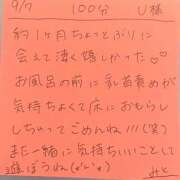 9/7 100分 U様
約1ヶ月ちょっとぶりに
会えて凄く嬉しかった♡
お風呂の前に乳首舐めが
気持ちよくて床におもらし
しちゃってごめんね!!!(笑)
また一緒に気持ちいいことして
遊ぼうね